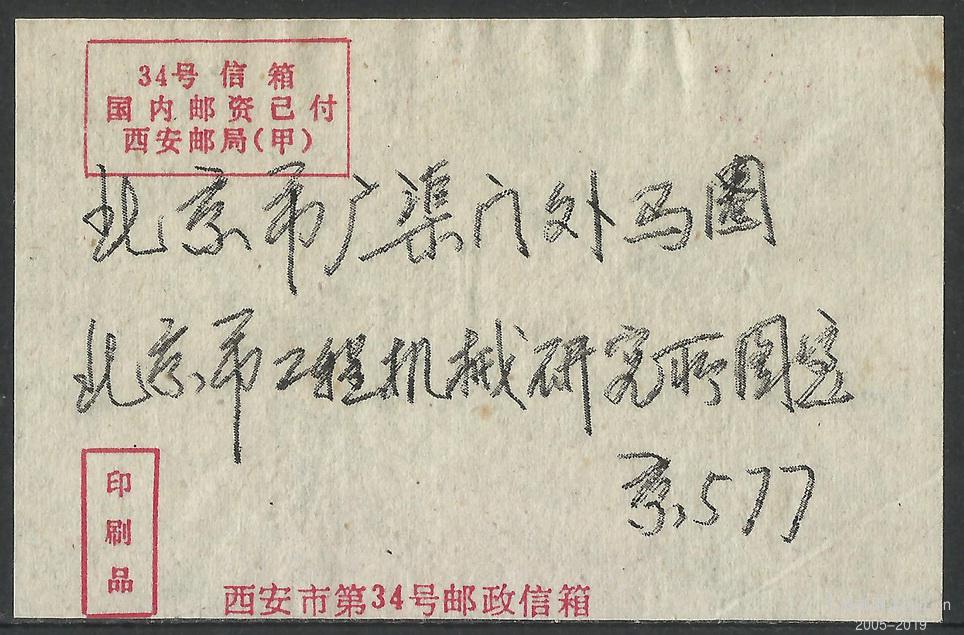 34号 信 箱
国 内 邮 资 已 付
西安邮局(甲)
北京市广渠门外马圈
北京市工程机械研究所图室
京577
印
刷
品
西安市第34号邮政信箱
2005-2019